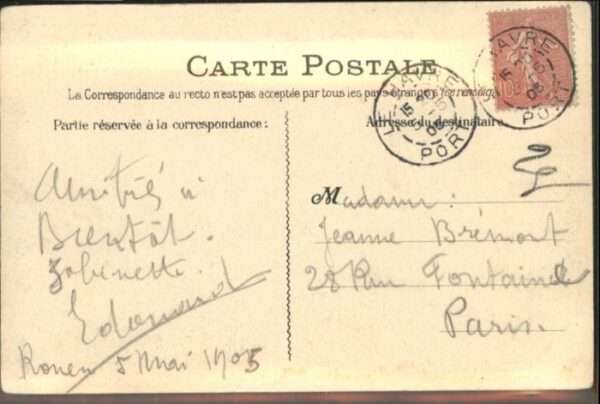 CARTE POSTALE
La Correspondance au recto n'est pas acceptée par tous les pays étrangers
Partie réservée à la correspondance :
Adresse du destinataire
LE HAVRE
PORT
LE HAVRE
PORT
Amitiés
à
Bientôt.
Edouard
Rouen 5 Mai 1905
Madame :
Jeanne Brémont
28 Rue Fontaine
Paris.